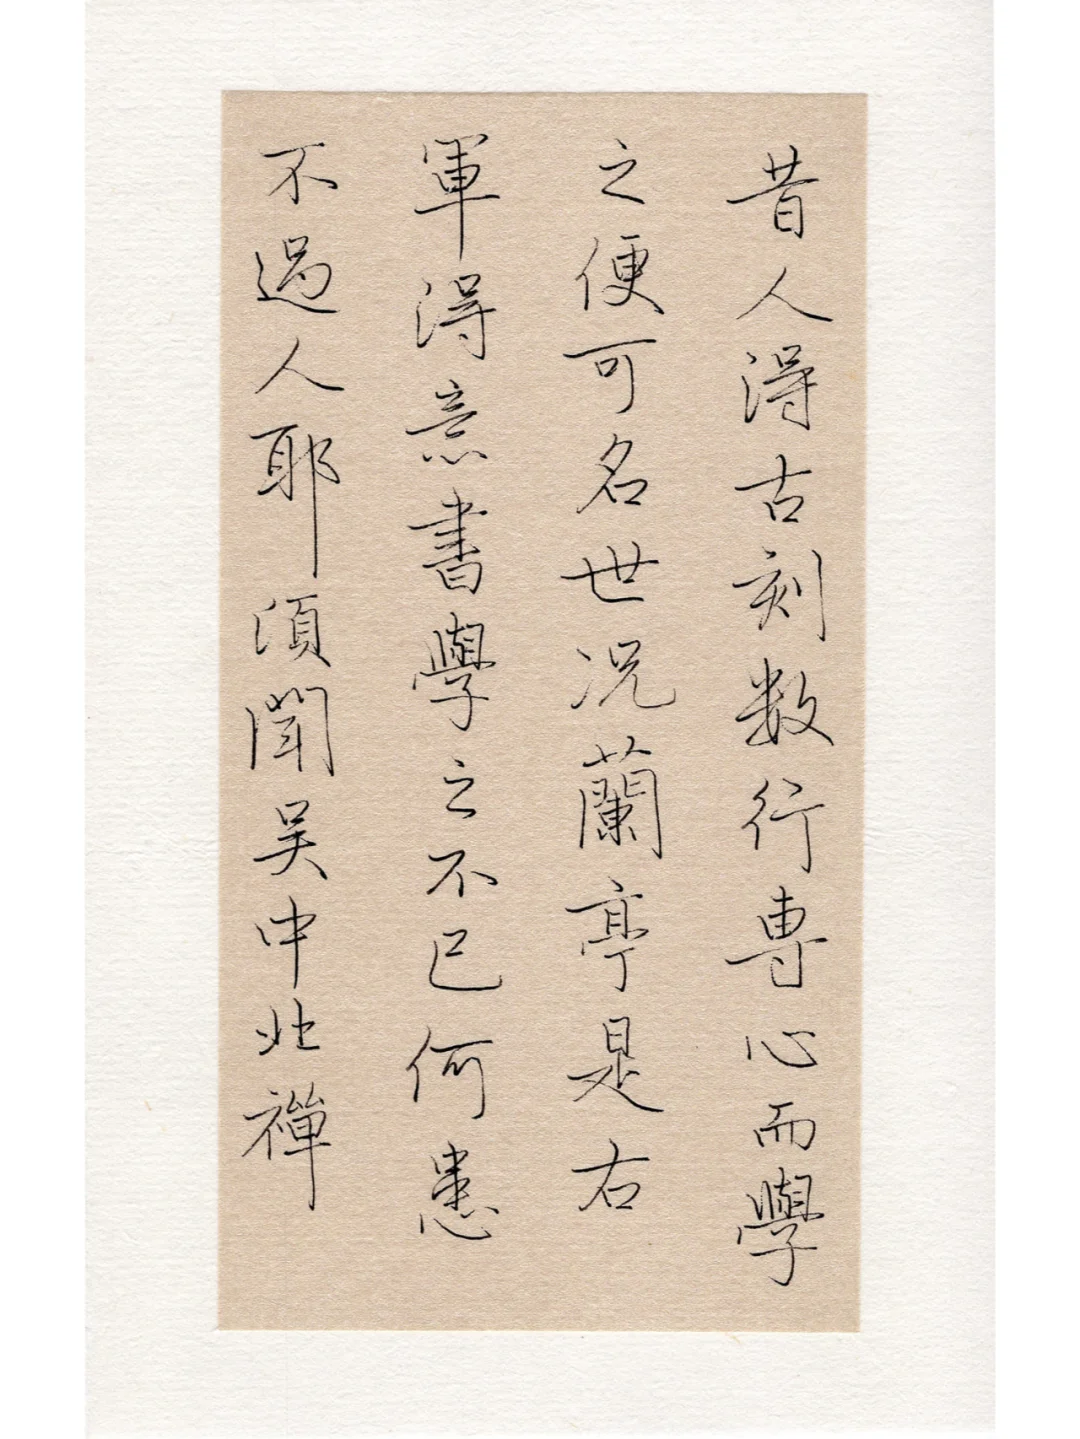 昔人得古刻数行専心而學
之便可名世况蘭亭是右
軍得意書學之不已何患
不過人耶須聞吴中北禪